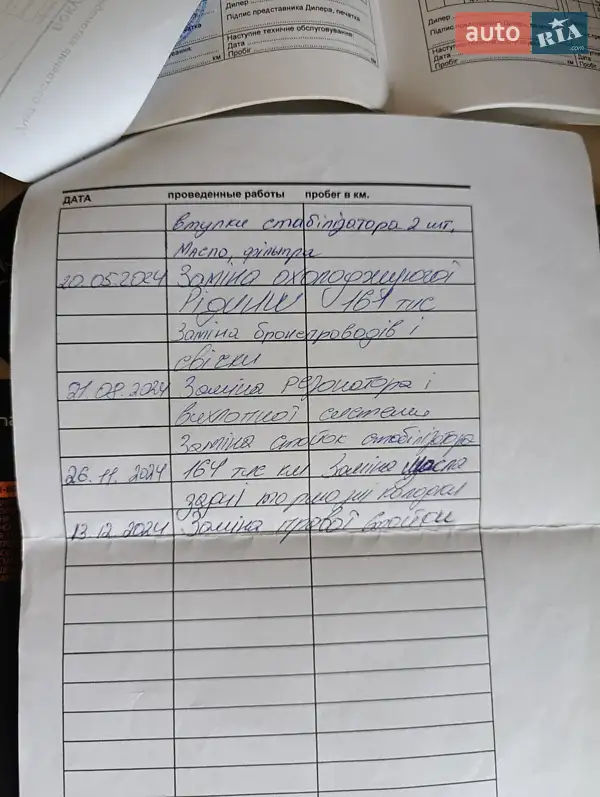 Дилер
Підпис представника Дилера, печатка
Наступне технічне обслуговування:
Дата
Пробіг км
Дилер
Наступ
Дата
Пробіг км
auto RIA .com
ДАТА проведенные работы пробег в км.
втулки стабілізатора 2 шт.
Масло, фільтра
20.05.2024 Заміна охолоджуючої
Рідини 161 тис
Заміна бронепроводів і
свічки
21.08.2024 Заміна резонатора і
вихлопної системи
Заміна стойок стабілізатора
26.11.2024 164 тис км Заміна масла
задні тормозні колодки
13.12.2024 Заміна правої стойки